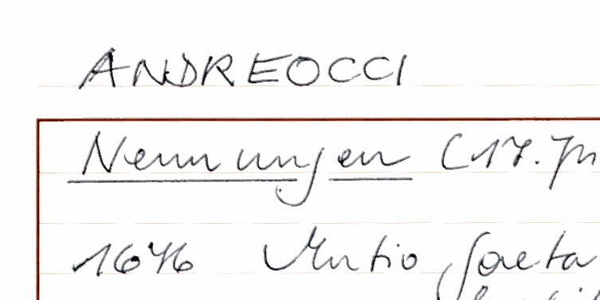 ANDREOCCI
Nennungen (17. Jh
1676 Mutio Gaeta